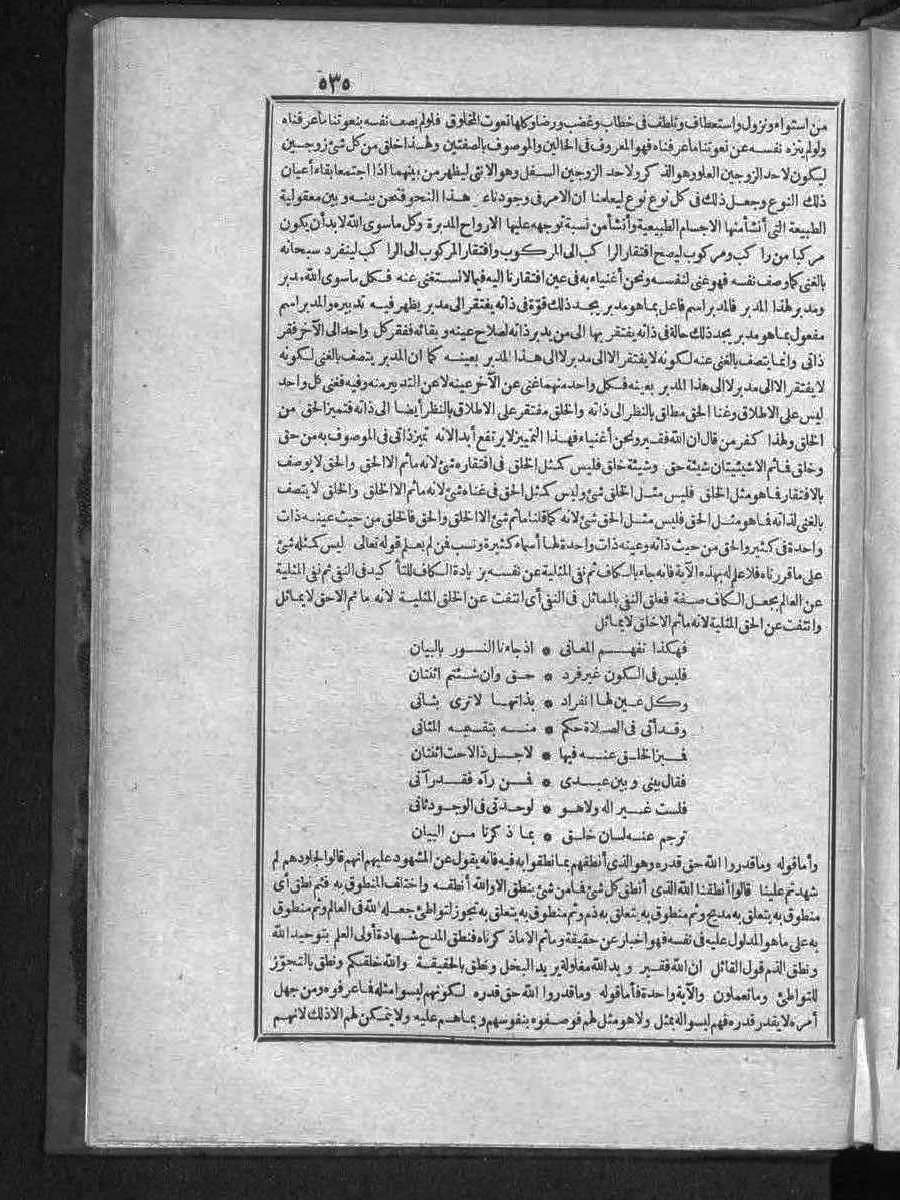 ٥٣٥
من استواء ونزول واستعطاف وتلطف فى خطاب وغضب ورضا وكلها نعوت المخلوق فلولم يصف نفسه بنعوتنا ما عرفناه
ولولم ينزه نفسه عن نعوتنا ما عرفناه فهو المعروف فى الحالين والموصوف بالصفتين ولهذا خلق من كل شئ زوجين
ليكون لاحد الزوجين العلو وهو الذكر ولاحد الزوجين السفل وهو الانثى ليظهر من بينهما اذا اجتمعا بقاء أعيان
ذلك النوع وجعل ذلك فى كل نوع نوع ليعلمنا ان الامر فى وجودناء هذا النحو فنحن بينه وبين معقولية
الطبيعة التى أنشأ منها الاجسام الطبيعية وأنشأ من نسبة توجهه عليها الارواح المدبرة وكل ماسوى الله لابد أن يكون
مركبا من راكب ومركوب ليصح افتقار الراكب الى المركوب وافتقار المركوب الى الراكب لينفرد سبحانه
بالغنى كما وصف نفسه فهو غنى لنفسه ونحن أغنياء به فى عين افتقارنا اليه فيما لانستغنى عنه فكل ماسوى الله مدبر
ومدبر لهذا المدبر فالمدبر اسم فاعل بما هو مدبر يجد ذلك قوّة فى ذاته يفتقر الى مدبر يظهر فيه تدبيره والمدبر اسم
مفعول بما هو مدبر يجد ذلك حالة فى ذاته يفتقر بها الى من يدبر ذاته لصلاح عينه وبقائه ففقر كل واحد الى الآخر فقر
ذاتى وانما يتصف بالغنى عنه لكونه لا يفتقر الا الى مدبر لا الى هذا المدبر بعينه كما ان المدبر يتصف بالغنى لكونه
لا يفتقر الا الى مدبر لا الى هذا المدبر بعينه فكل واحد منهما غنى عن الآخر عينه لا عن التدبير منه وفيه فغنى كل واحد
ليس على الاطلاق وغنا الحق مطلق بالنظر الى ذاته والخلق مفتقر على الاطلاق بالنظر أيضا الى ذاته فتميز الحق من
الخلق ولهذا كفر من قال ان الله فقير ونحن أغنياء فهذا التمييز لا يرتفع أبدا لانه تميز ذاتى فى الموصوف به من حق
وخلق فما ثم الاشيئيتان شيئية حق وشيئية خلق فليس كمثل الخلق فى افتقاره شئ لانه ما ثم الا الحق والحق لا يوصف
بالافتقار فما هو مثل الخلق فليس مثل الخلق شئ وليس كمثل الحق فى غناه شئ لانه ما ثم الا الخلق والخلق لا يتصف
بالغنى لذاته فما هو مثل الحق فليس مثل الحق شئ لانه كما قلنا ما ثم شئ الا الخلق والحق فالخلق من حيث عينه ذات
واحدة فى كثير والحق من حيث ذاته وعينه ذات واحدة لها أسماء كثيرة ونسب فمن لم يعلم قوله تعالى ليس كمثله شئ
على ما قررناه فلا علم له بهذه الآية فانه جاء بالكاف ثم نفى المثلية عن نفسه بزيادة الكاف للتأكيد فى النفى ثم نفى المثلية
عن العالم بجعل الكاف صفة فعلق النفى بالمماثل فى النفى أى انتفت عن الخلق المثلية لانه ما ثم الاحق لا يماثل
وانتفت عن الحق المثلية لانه ما ثم الاخلق لا يماثل
فهكذا تفهم المعانى * اذ جاءنا النور بالبيان
فليس فى الكون غير فرد * حق وان شئتم اثنتان
وكل عين لها انفراد * بذاتها لا ترى بثانى
وقد أتى فى الصلاة حكم * منه بتقسيمه المثانى
فميز الخلق عنه فيها * لاجل ذا لاحت اثنتان
فقال بينى وبين عبدى * فمن رآه فقد رآنى
فلست غير اله ولا هو * لوحدتى فى الوجود ثانى
ترجم عنه لسان خلق * بما ذكرنا من البيان
وأما قوله وما قدروا الله حق قدره وهو الذى أنطقهم بما نطقوا به فيه فانه يقول عن المشهود عليهم انهم قالوا لجلودهم لم
شهدتم علينا قالوا أنطقنا الله الذى أنطق كل شئ فما من شئ ينطق الا والله أنطقه واختلف المنطوق به فثم نطق أى
منطوق به يتعلق به مديح وثم منطوق به يتعلق به ذم وثم منطوق به يتعلق به تجوز لتواطئ جعله الله فى العالم وثم منطوق
به على ما هو المدلول عليه فى نفسه فهو اخبار عن حقيقة وما ثم الاماذكرناه فنطق المدح شهادة أولى العلم بتوحيد الله
ونطق الذم قول القائل ان الله فقير ويد الله مغلولة يريد البخل ونطق بالحقيقة والله خلقكم ونطق بالتجوّز
للتواطئ وما تعملون والآية واحدة فأما قوله وما قدروا الله حق قدره لكونهم ليسوا مثله فما عرفوه ومن جهل
أمره لا يقدر قدره فهم ليسوا له بمثل ولا هو مثل لهم فوصفوه بنفوسهم وبما هم عليه ولا يتمكن لهم الاذلك لانهم